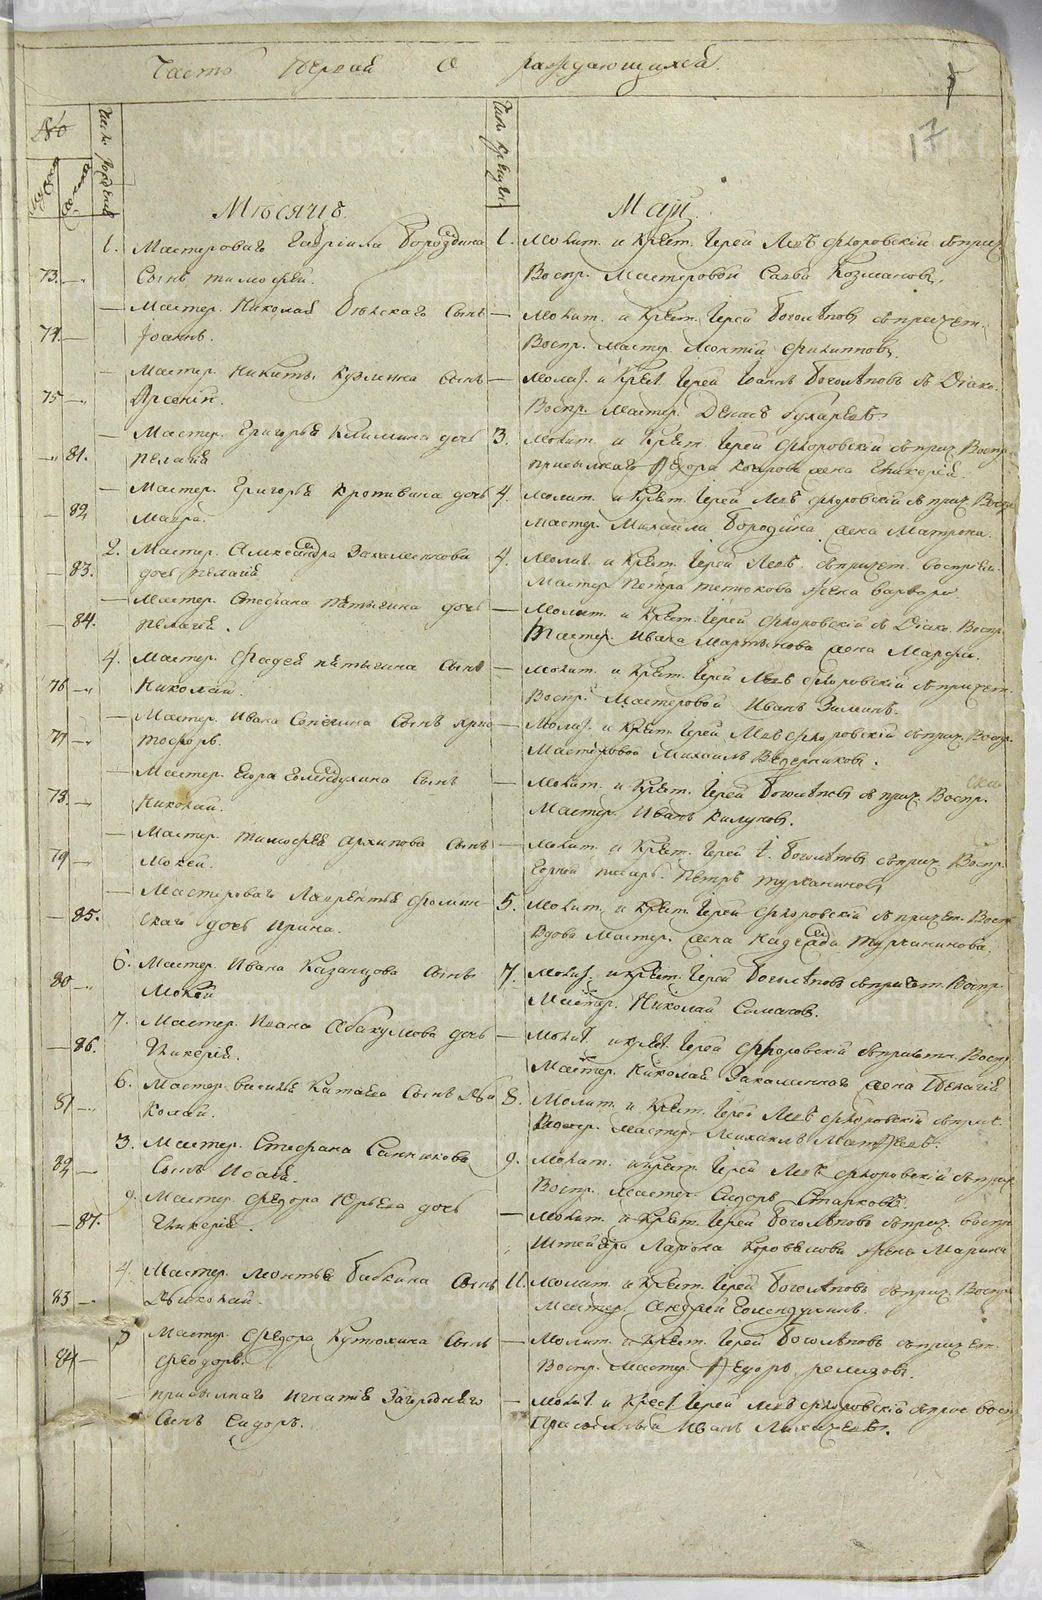 METRIKI.GASO-URAL.RU
Часть Первая О раждающихся.
17
№
Мѣсяцъ
Май.
1. Мастероваго Гавріила Бороздина
73. Сынъ тимофей.
1. Молит. и Крест. Іерей Левъ Флоровскій съ прич.
Воспр. Мастеровой Савва Козмановъ.
Мастер. Николая Бѣлскаго Сынъ
74. Іоаннъ.
Молит. и Крест. Іерей Боголѣповъ съ причет.
Воспр. мастер. Леонтій Филипповъ.
Мастер. Никиты Кузмина Сынъ
75 Арсеній.
Молит. и Крест. Іерей Іоаннъ Боголѣповъ съ Діако.
Воспр. Мастер. Денисъ
Мастер. Григорья Климина дочь
81. пелагія
3. Молит. и Крест. Іерей Флоровскій съ прич. Воспр.
жена Гликерія
Мастер. Григорья Кропивина дочь
82 Мавра.
4. Молит. и Крест. Іерей Левъ Флоровскій съ прич. Воспр.
Мастер. Михаила Бородина жена Матрона.
2. Мастер. Александра Закаменнова
83. дочь пелагія
4. Молит. и Крест. Іерей Левъ съ причет. воспрем.
Мастер Петра тетюкова жена варвара.
Мастер. Стефана Пѣтыгина дочь
84. пелагія.
Молит. и Крест. Іерей Флоровскій съ Діако. Воспр.
Мастер. Ивана Мартьянова жена Марфа.
4. Мастер. Фадея пѣтыгина Сынъ
76 Николай.
Молит. и Крест. Іерей Левъ Флоровскій съ причет.
Воспр. Мастеровой Иванъ Зиминъ.
Мастер. Ивана Сопегина Сынъ Хрис
77 тофоръ.
Молит. и Крест. Іерей Левъ Флоровскій съ прич. Воспр.
Мастеровой Михаилъ Ведерниковъ.
Мастер. Егора Голендухина Сынъ
78. Николай.
Молит. и Крест. Іерей Боголѣповъ съ прич. Воспр.
Мастер. Иванъ
Мастер. Тимофея Архипова Сынъ
79 Мокей.
Молит. и Крест. Іерей І. Боголѣповъ съ прич. Воспр.
Горной писарь. Петръ Турчаниновъ
Мастероваго Лаврентья Фомин-
85. скаго дочь Ирина.
5. Молит. и Крест. Іерей Флоровскій съ причет. Воспр.
Вдова Мастер. жена Надежда Турчанинова.
6. Мастер. Ивана Казанцова Сынъ
80 Мокей
7. Молит. и Крест. Іерей Боголѣповъ съ причет. Воспр.
Мастер. Николай Симаковъ.
7. Мастер. Ивана Абакумова дочь
86. Гликерія.
Молит. и крест. Іерей Флоровскій съ причт. Воспр.
Мастер. Николая Закаменнаго жена Пелагія
6. Мастер. Василья Катаева Сынъ Ни
81 колай.
8. Молит. и Крест. Іерей Левъ Флоровскій съ прич.
Воспр. Мастер. Михаилъ Матвеевъ.
3. Мастер. Стефана Санникова
82 Сынъ Исаія.
9. Молит. и крест. Іерей Левъ Флоровскій съ прич.
Воспр. Мастер. Сидоръ Старковъ.
9. Мастер. Федора Юрьева дочь
87. Гликерія.
Молит. и Крест. Іерей Боголѣповъ съ прич. воспр.
Штейгера Ларіона Коровякова жена Марина
4. Мастер. Леонтья Бабкина Сынъ
83 Николай.
11. Молит. и Крест. Іерей Боголѣповъ съ прич. Воспр.
Мастер Андрей Голендухинъ.
Мастер. Федора Кутюхина Сынъ
84 Феодоръ.
Молит. и Крест. Іерей Боголѣповъ съ причет.
Воспр. Мастер. Федоръ ремизовъ.
Игнатія Загороднаго
Сынъ Сидоръ.
Молит. и Крест. Іерей Левъ Флоровскій съ прич. воспр.
Иванъ Лихачевъ.